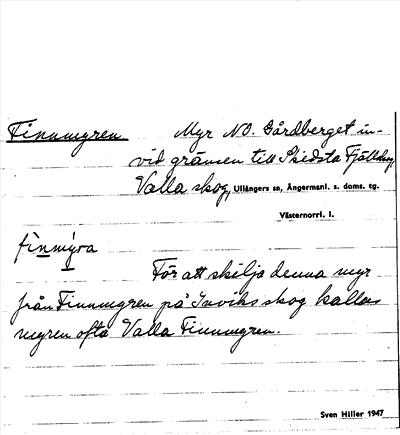 Finnmyren Myr NO. Gårdberget in-
vid gränsen till Skedsta Fjällskog
Valla skog, Ullångers sn, Ångermanl. s. doms. tg.
Västernorrl. l.
finmyra
För att skilja denna myr
från Finnmyren på Inviks skog kallas
myren ofta Valla Finnmyren.
Sven Hiller 1947